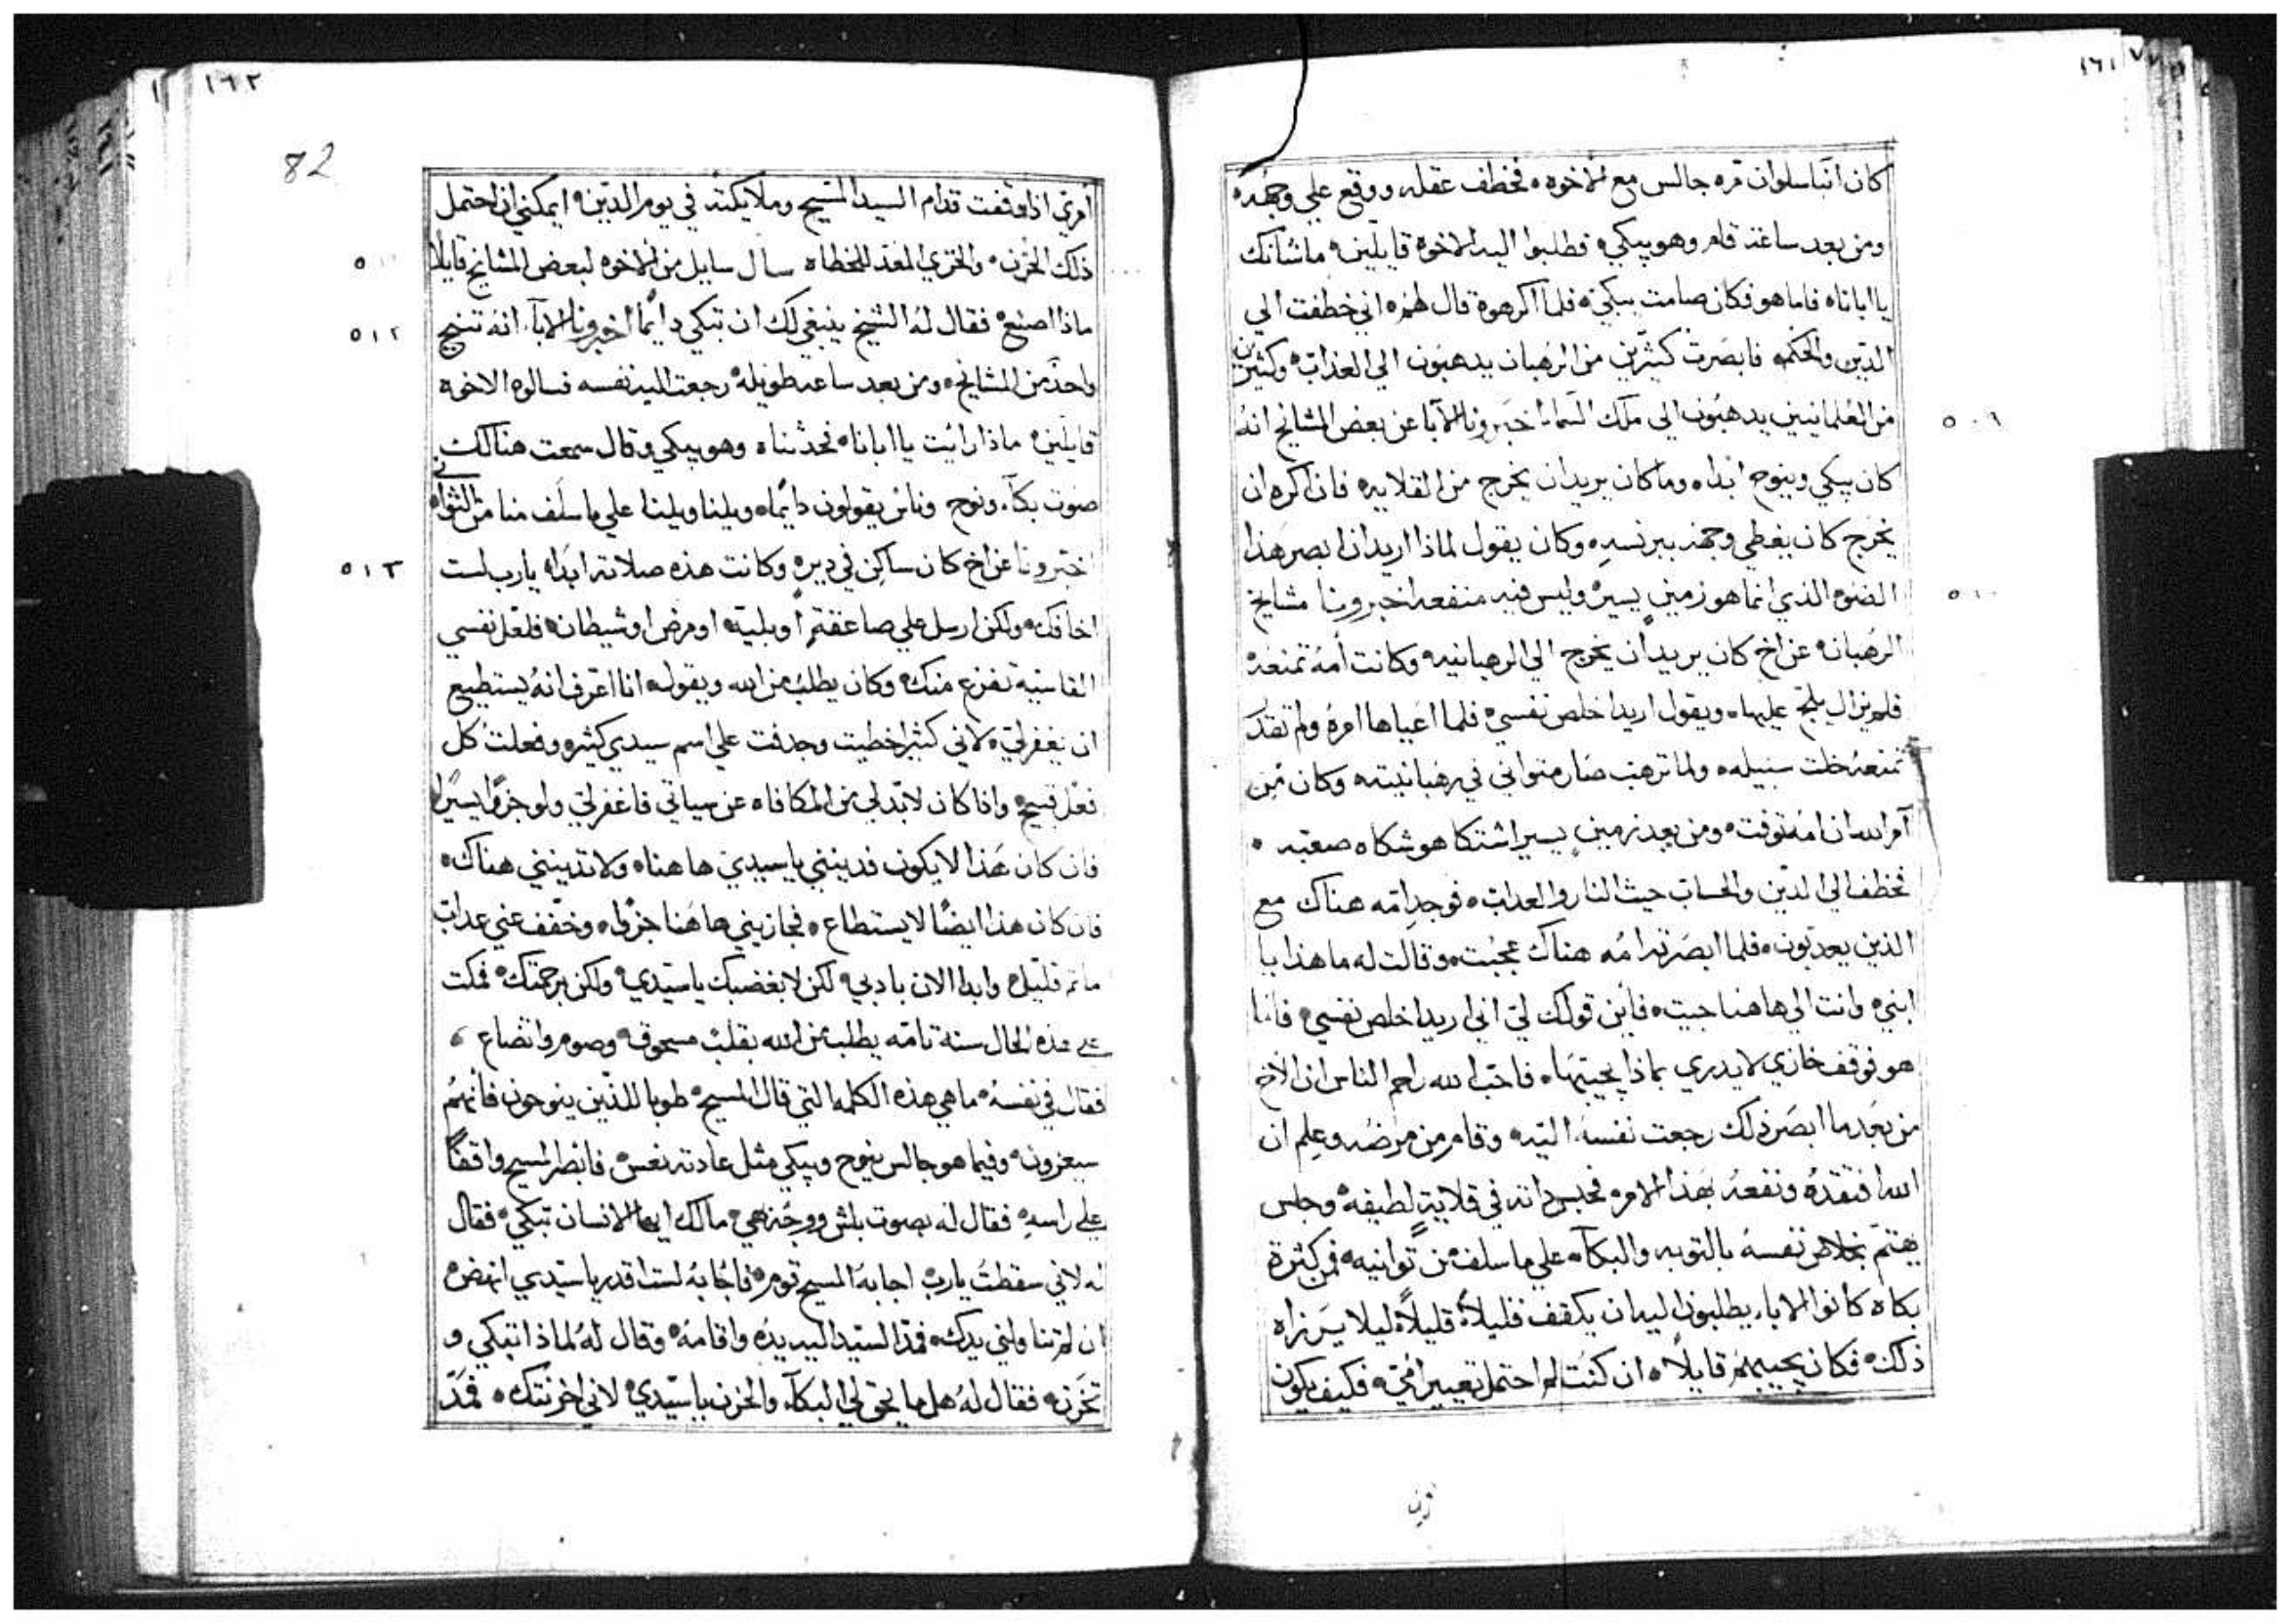 ١٦١
كان انبا سلوان مره جالس مع الاخوه، فخطف عقله ووقع علي وجهه
ومن بعد ساعة قام وهو يبكي، فطلبوا اليه الاخوة قايلين، ما شانك
يا اباناه فاما هو فكان صامت يبكي، فلما اكرهوة قال لهم، اني خطفت الي
الدين والحكم، فابصرت كثيرين من الرهبان يدهبون الي العذاب، وكثيرين
من العلمانيين يدهبون الي ملك السماء، اخبرونا الابا عن بعض المشايخ انه
٥٠٩
كان يبكي وينوح ابداه وما كان يريد ان يخرج من القلايه، فان اكره ان
يخرج كان يغطي وجهه ببرنسه، وكان يقول لماذا اريد ان ابصر هذا
الضوء الذي انما هو زمني يسير، وليس فيه منفعه، اخبرونا مشايخ
٥١٠
الرهبان، عن اخ كان يريد ان يخرج الي الرهبانيه، وكانت امه تمنعه
فلم يزال يلح عليها، ويقول اريد اخلص نفسي، فلما اعياها امره ولم تقدر
تمنعه خلت سبيله، ولما ترهب صار متواني في رهبانيته، وكان من
امر الله ان امه توفت، ومن بعد زمين يسير اشتكا هو شكاه صعبه،
فخطف الي الدين والحساب حيث النار والعداب، فوجد امه هناك مع
الذين يعدبون، فلما ابصرته امه هناك عجبت، وقالت له ما هذا يا
ابني، وانت الي هاهنا جيت، فاين قولك لي اني اريد اخلص نفسي، فاما
هو فوقف خازي لا يدري بماذا يجيبها، فاحب الله راحم الناس ان الاخ
من بعد ما ابصر ذلك رجعت نفسه اليه، وقام من مرضه وعلم ان
الله افتقده ونفعه بهذا الامر، فحبس داته في قلاية لطيفه، وجلس
يهتم بخلاص نفسه بالتوبه والبكآء، علي ما سلف من توانيه، فمن كثرة
بكاه كانوا الاباء يطلبون اليه ان يكفف قليلاً قليلاً، ليلا
ذلك، فكان يجيبهم قايلاً، ان كنت لم احتمل تعيير امي، فكيف يكون
١٦٢
82
امري اذا وقفت قدام السيد المسيح وملايكته في يوم الدين، ايمكني ان احتمل
ذلك الحزن، والخزي المعد للخطاه، سال سايل من الاخوه لبعض المشايخ قايلا
٥١١
ماذا اصنع، فقال له الشيخ ينبغي لك ان تبكي دايماً اخبرونا الابآ، انه تنيح
٥١٢
واحد من المشايخ، ومن بعد ساعه طويله، رجعت اليه نفسه فسالوه الاخوه
قايلين، ماذا رايت يا اباناه، فحدثناه وهو يبكي وقال سمعت هنالك
صوت بكآء ونوح وناس يقولون دايماه ويلنا ويلنا علي ما سلف منا من التواني
اخبرونا عن اخ كان ساكن في ديره وكانت هذه صلاته ابداه يا رب لست
٥١٣
اخافك، ولكن ارسل علي صاعقة، او بليه، او مرض او شيطان، فلعل نفسي
القاسيه تفزع منك، وكان يطلب من الله ويقول، انا اعرف انه يستطيع
ان يغفر لي، لاني كثير اخطيت وجدفت علي اسم سيدي كثير، وفعلت كل
فعل قبيح، واذا كان لا بد لي من المكافاه عن سياتي فاغفر لي ولو جزوًا يسيرًا
فان كان هذا لا يكون فدينني يا سيدي هاهناه ولا تدينني هناك،
فان كان هذا ايضًا لا يستطاع، فجازيني هاهنا جزواه وخفف عني عداب
ما ثم قليل، وابدا الان بادبي، لكن لا بغضبك يا سيدي، ولكن برحمتك، فمكت
علي هذه الحال سنة تامه يطلب من الله بقلب مسحوق، وصوم واتضاع،
فقال في نفسه، ما هي هذه الكلمه التي قال المسيح، طوبا للذين ينوحون فانهم
سيعزون، وفيما هو جالس ينوح ويبكي مثل عادته نعس، فابصر المسيح واقفاً
علي راسه، فقال له بصوت بلش ووجه بهي، مالك ايها الانسان تبكي، فقال
له لاني سقطت يا رب، اجابه المسيح قوم، فاجابه لست اقدر يا سيدي انهض
ان لم تناولني يدك، فمد السيد اليه يده واقامه، وقال له لماذا تبكي و
تحزن، فقال له هل ما يحق لي البكآء والحزن يا سيدي، لاني احزنتك، فمد